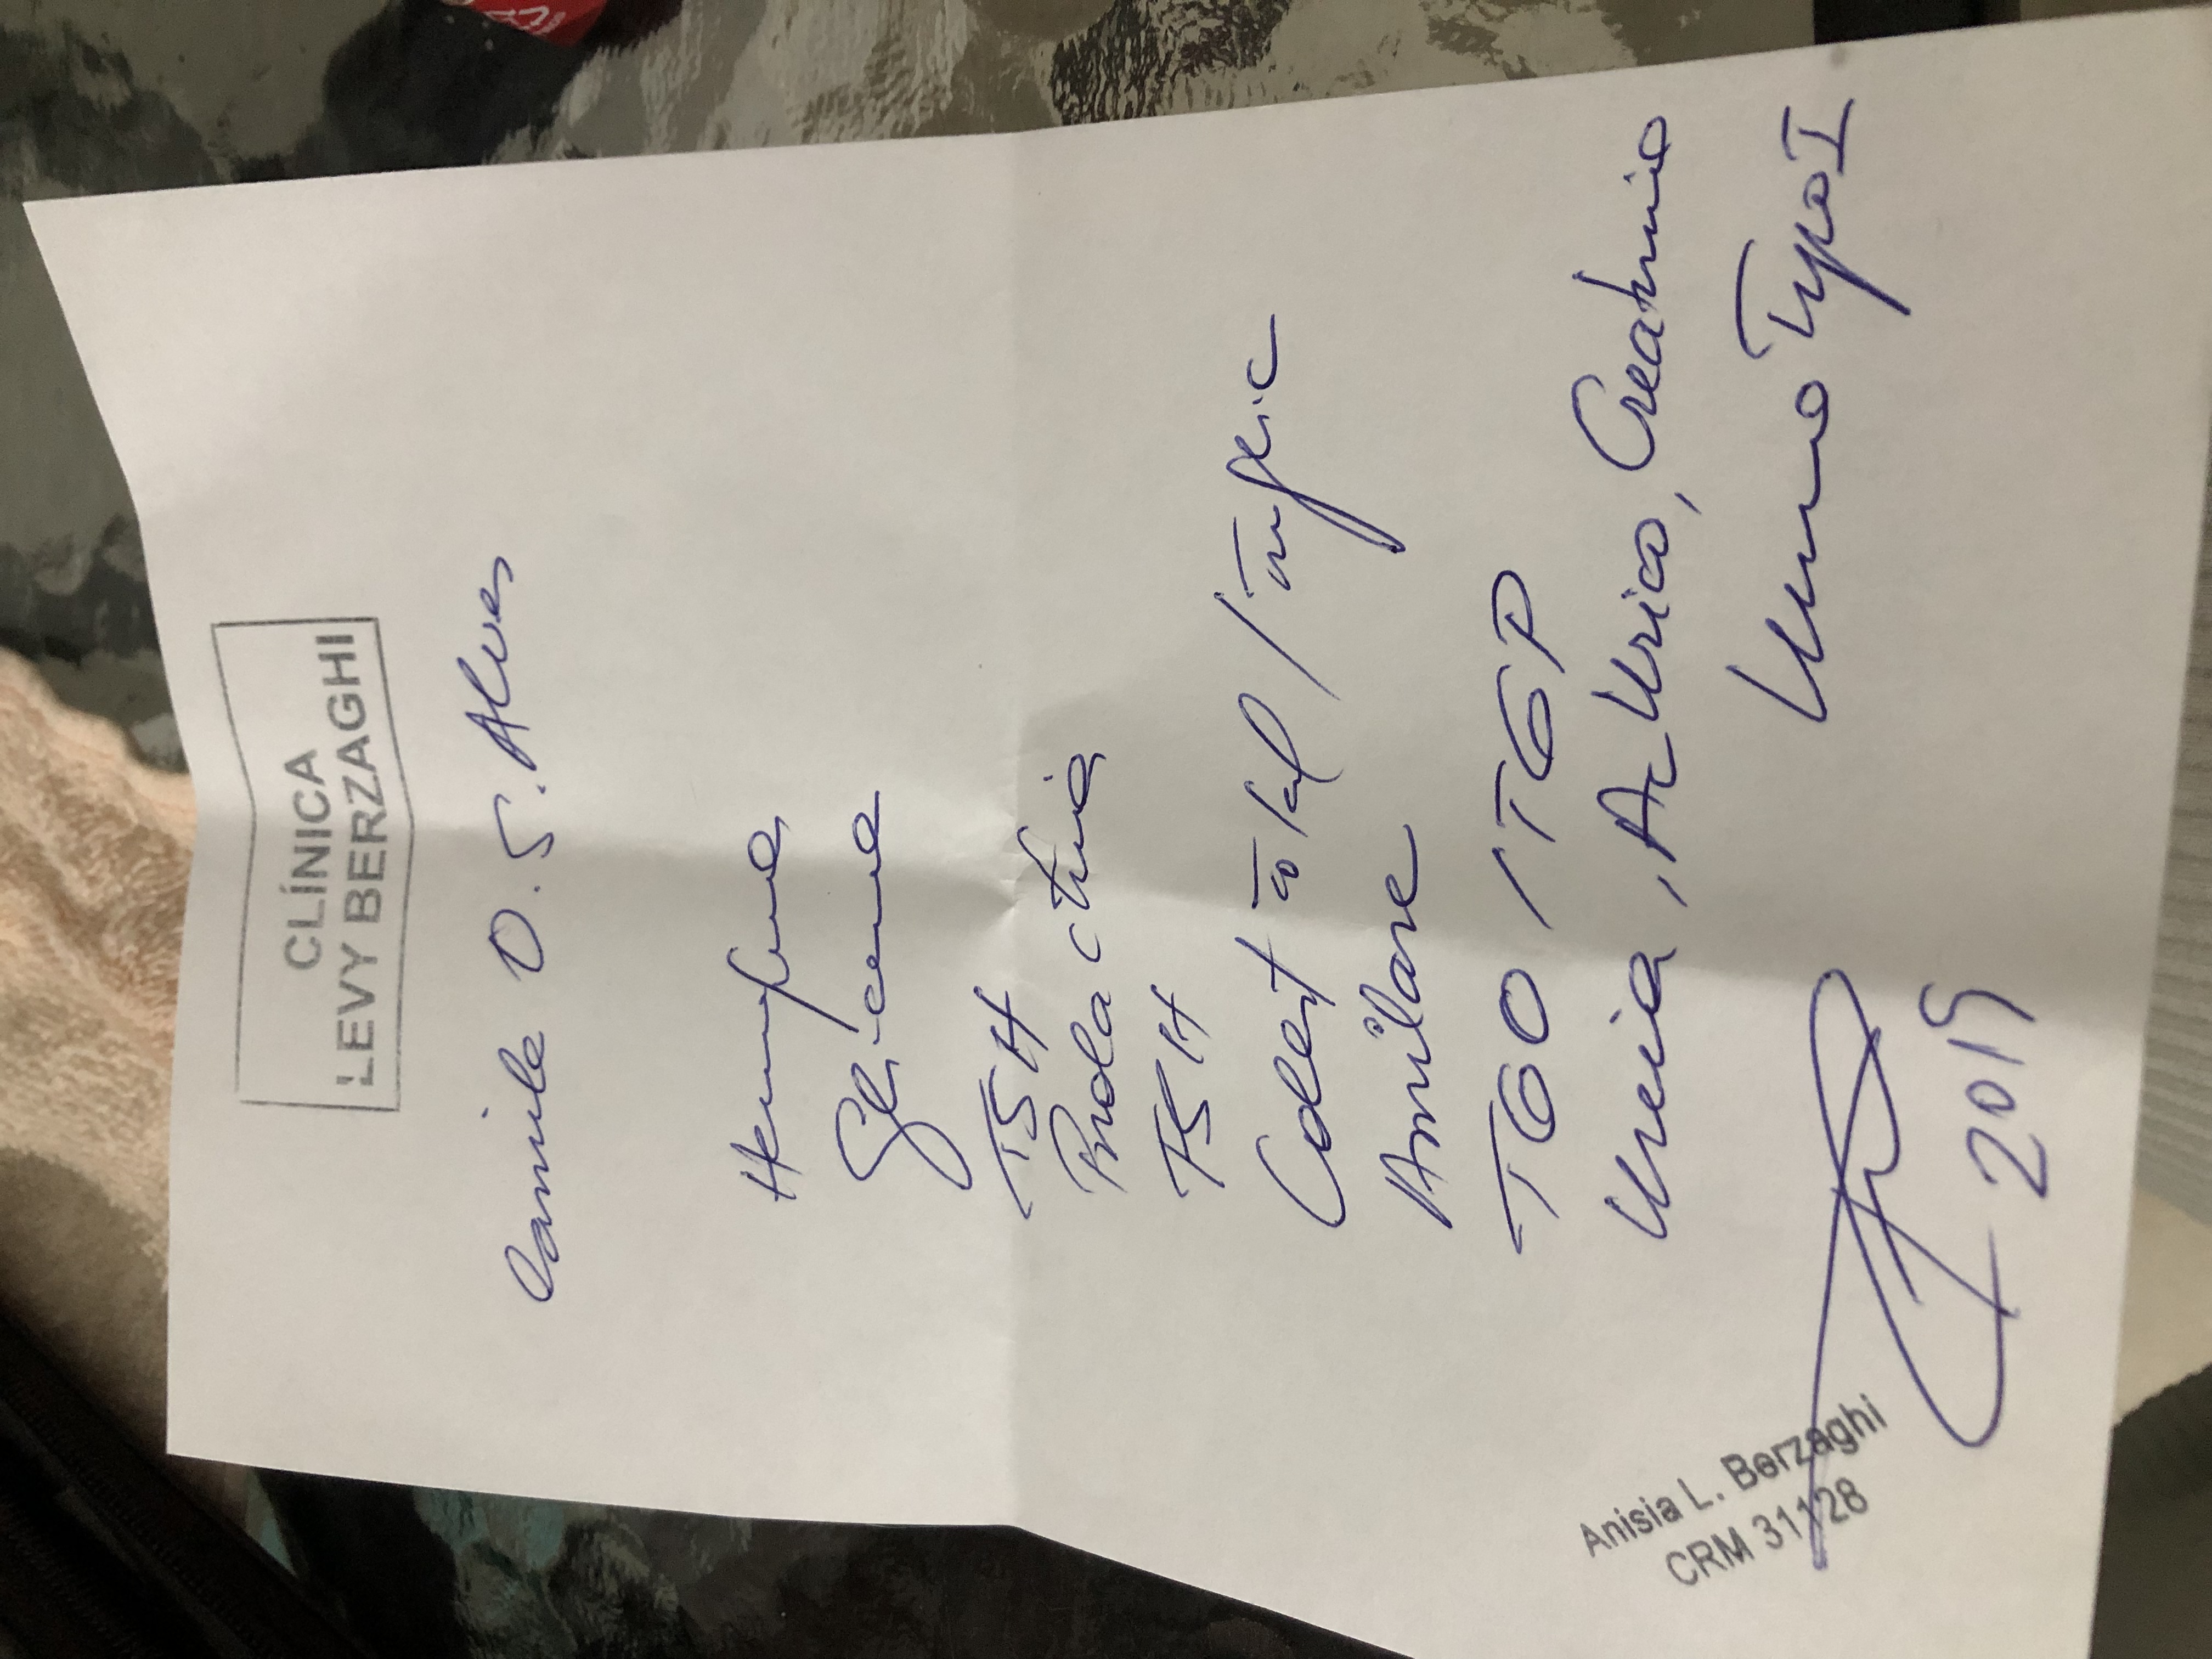 CLÍNICA
LEVY BERZAGHI
Camila O. S. Alves
Hemograma
Glicemia
TSH
Prolactina
FSH
Colest total / Triglic
Amilase
TGO / TGP
Ureia, Ac Urico, Creatinina
Urina Typo I
Anisia L. Berzaghi
CRM 31128
2019